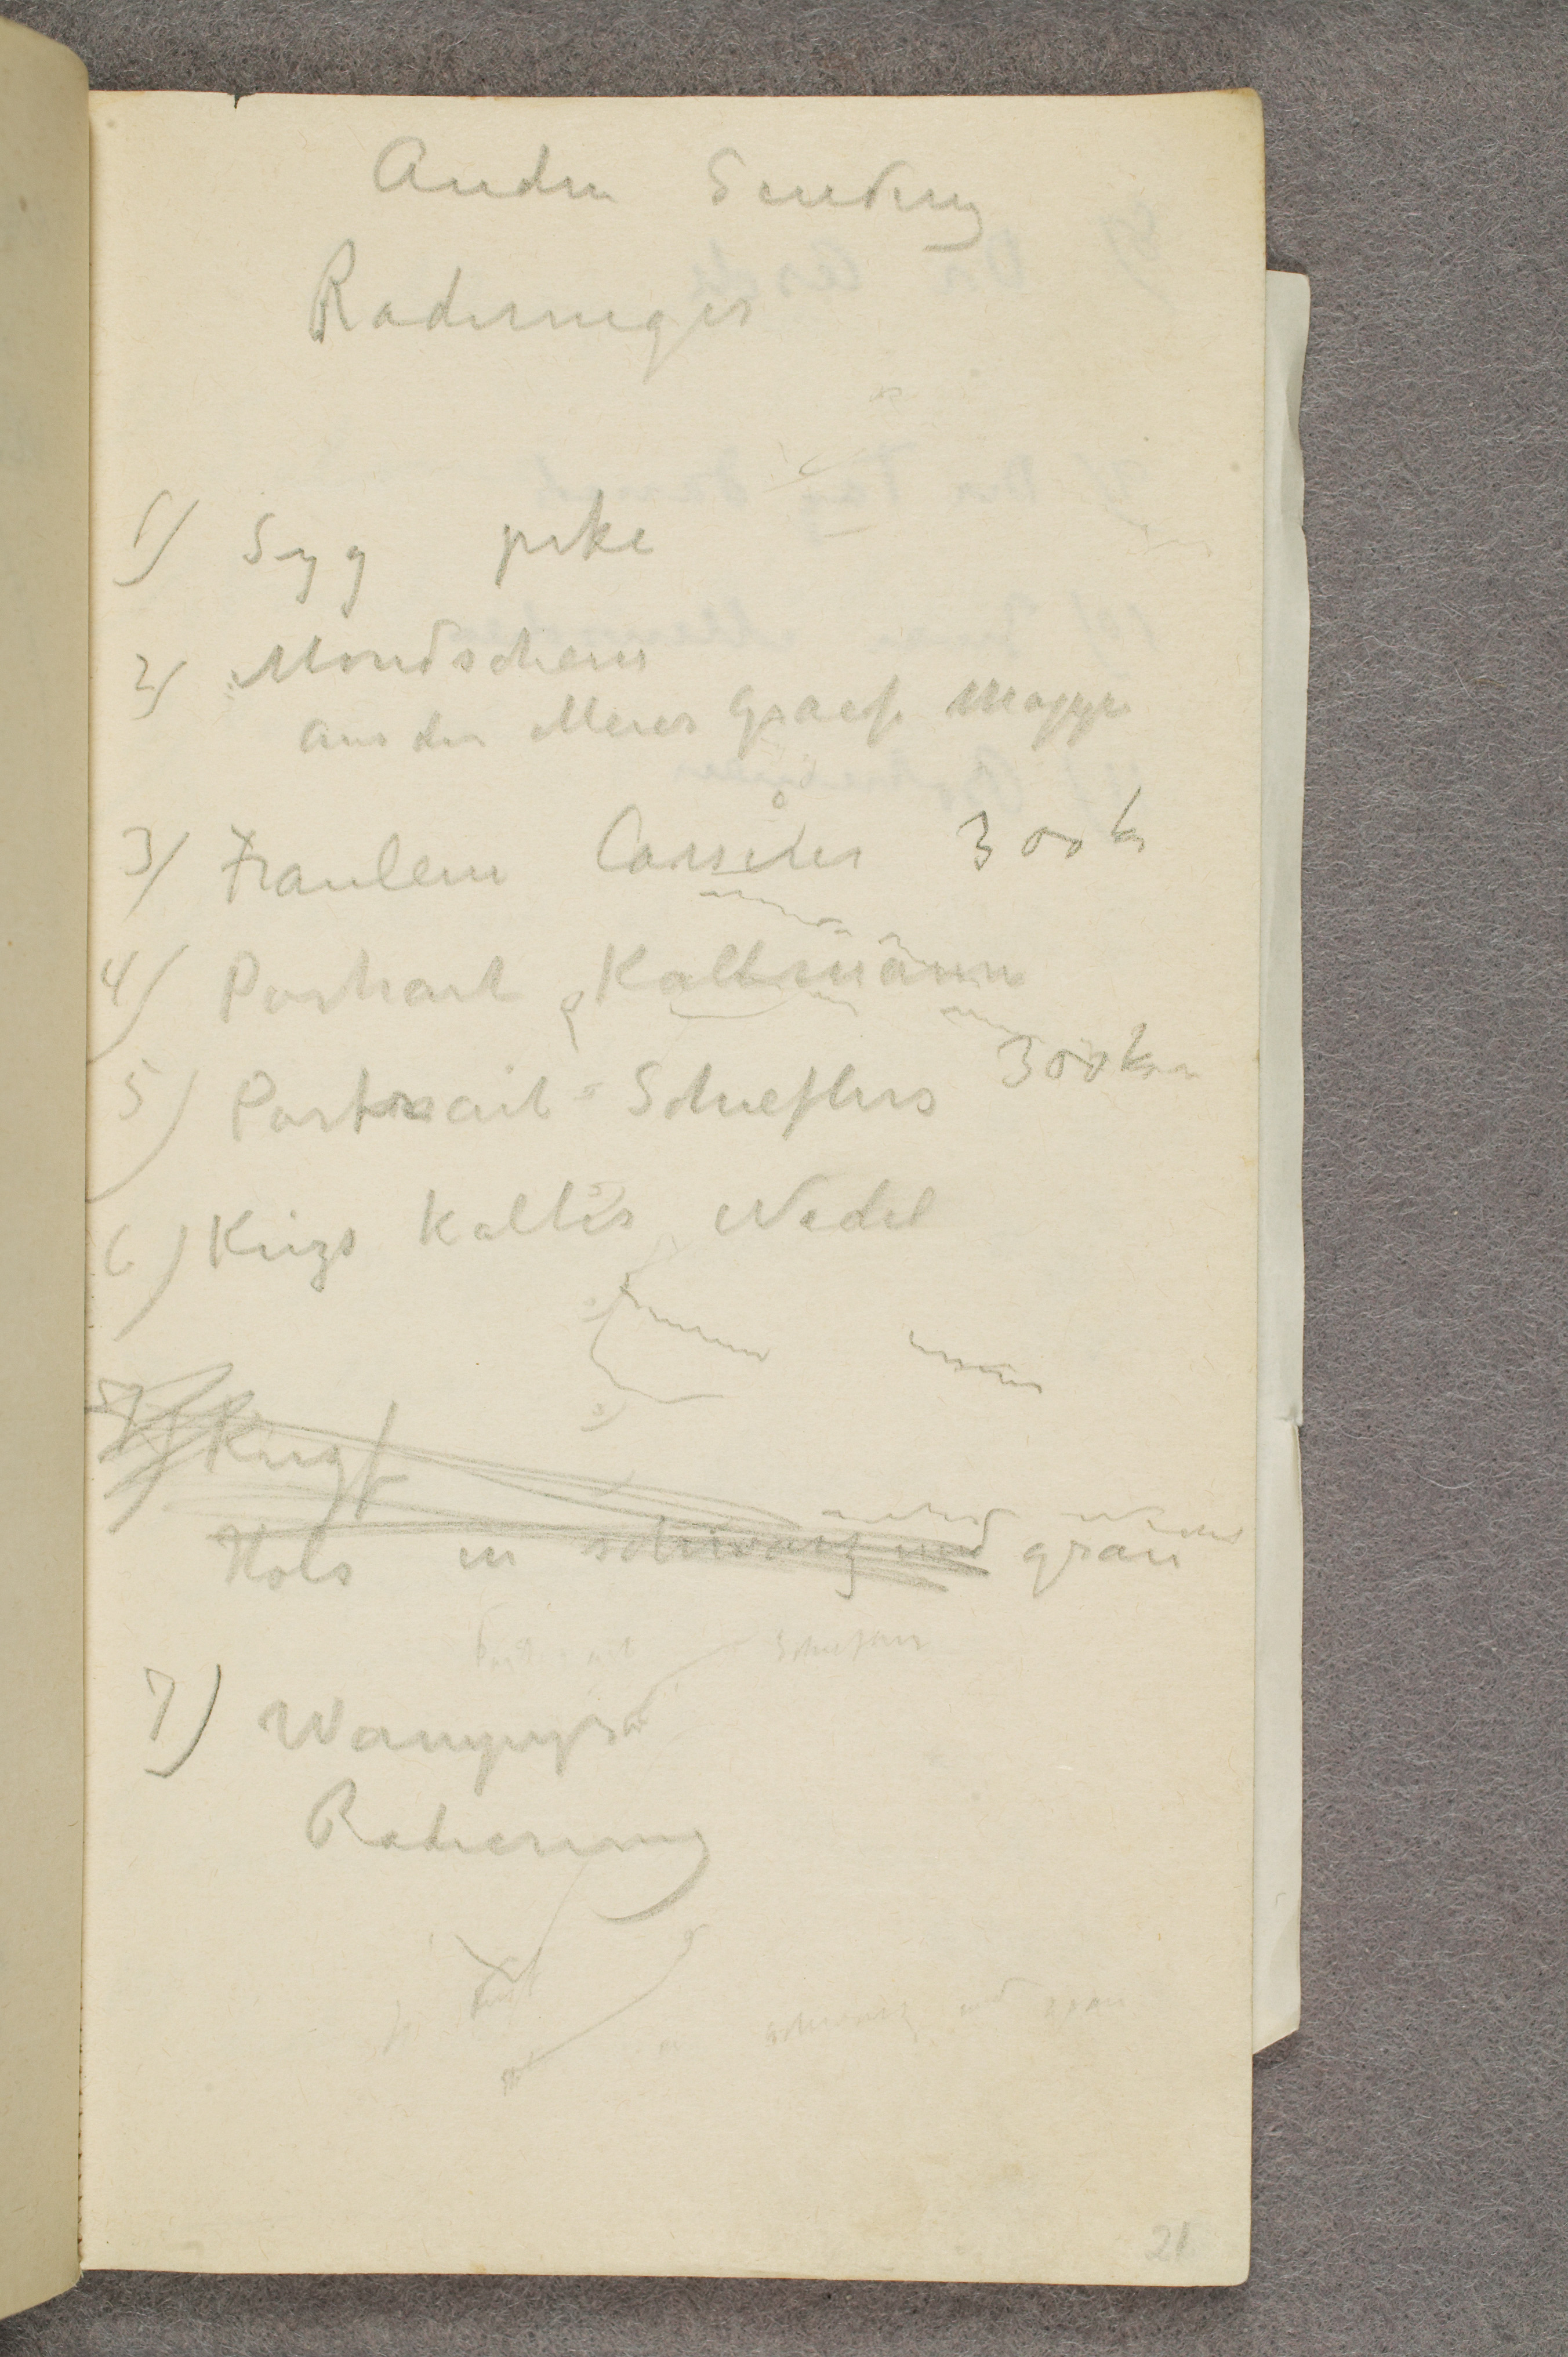 Anden Sending
Radierunger
1) Syg pike
2) Mondschein
aus der Meier Graefe Mappe
3) Fraulein Cassirer 300 kr
4) Portrait Kollmann
5) Portrait Schieflers 300 kr
6) Krigs kaltes Nadel
Krigs
Hols in schwarz und grau
7)
Radierung
21